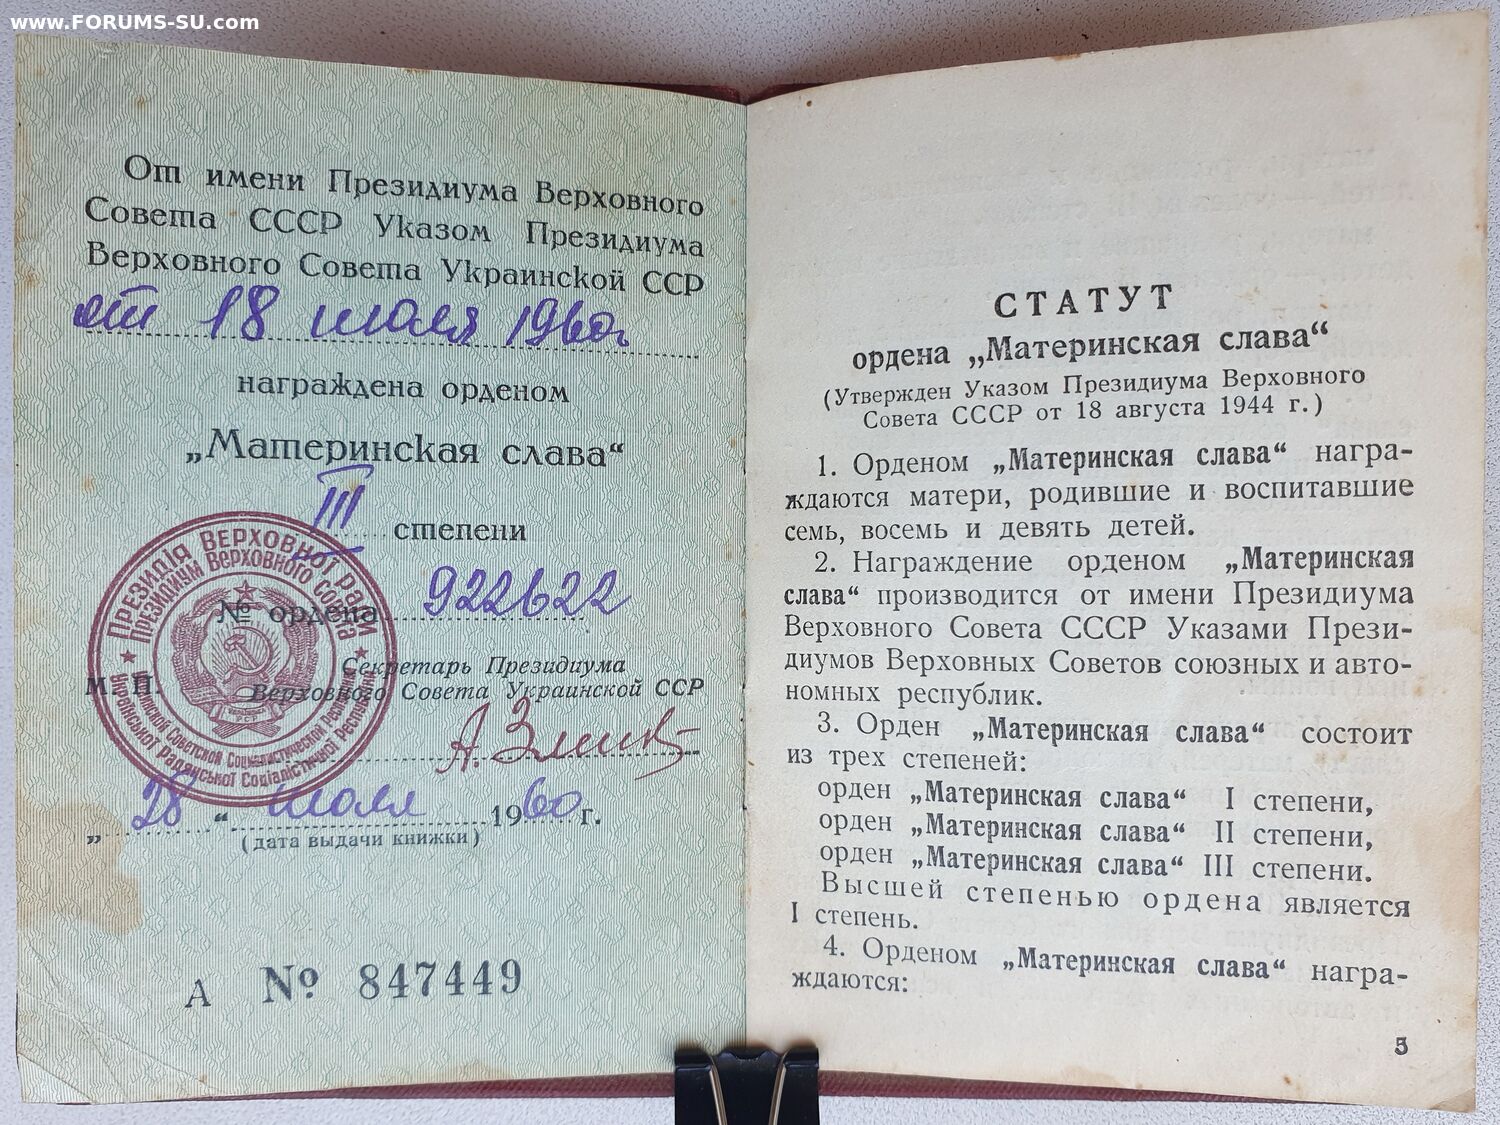 www.FORUMS-SU.com
От имени Президиума Верховного
Совета СССР Указом Президиума
Верховного Совета Украинской ССР
от 18 июля 1960г
награждена орденом
„Материнская слава“
III степени
№ ордена 922622
Секретарь Президиума
М. П. Верховного Совета Украинской ССР
„28“ июля 1960 г.
(дата выдачи книжки)
А № 847449
ПРЕЗИДІЯ ВЕРХОВНОЇ РАДИ
Української Радянської Соціалістичної Республіки
ПРЕЗИДИУМ ВЕРХОВНОГО СОВЕТА
Украинской Советской Социалистической Республики
СТАТУТ
ордена „Материнская слава“
(Утвержден Указом Президиума Верховного
Совета СССР от 18 августа 1944 г.)
1. Орденом „Материнская слава“ награ-
ждаются матери, родившие и воспитавшие
семь, восемь и девять детей.
2. Награждение орденом „Материнская
слава“ производится от имени Президиума
Верховного Совета СССР Указами Прези-
диумов Верховных Советов союзных и авто-
номных республик.
3. Орден „Материнская слава“ состоит
из трех степеней:
орден „Материнская слава“ I степени,
орден „Материнская слава“ II степени,
орден „Материнская слава“ III степени.
Высшей степенью ордена является
I степень.
4. Орденом „Материнская слава“ награ-
ждаются:
5